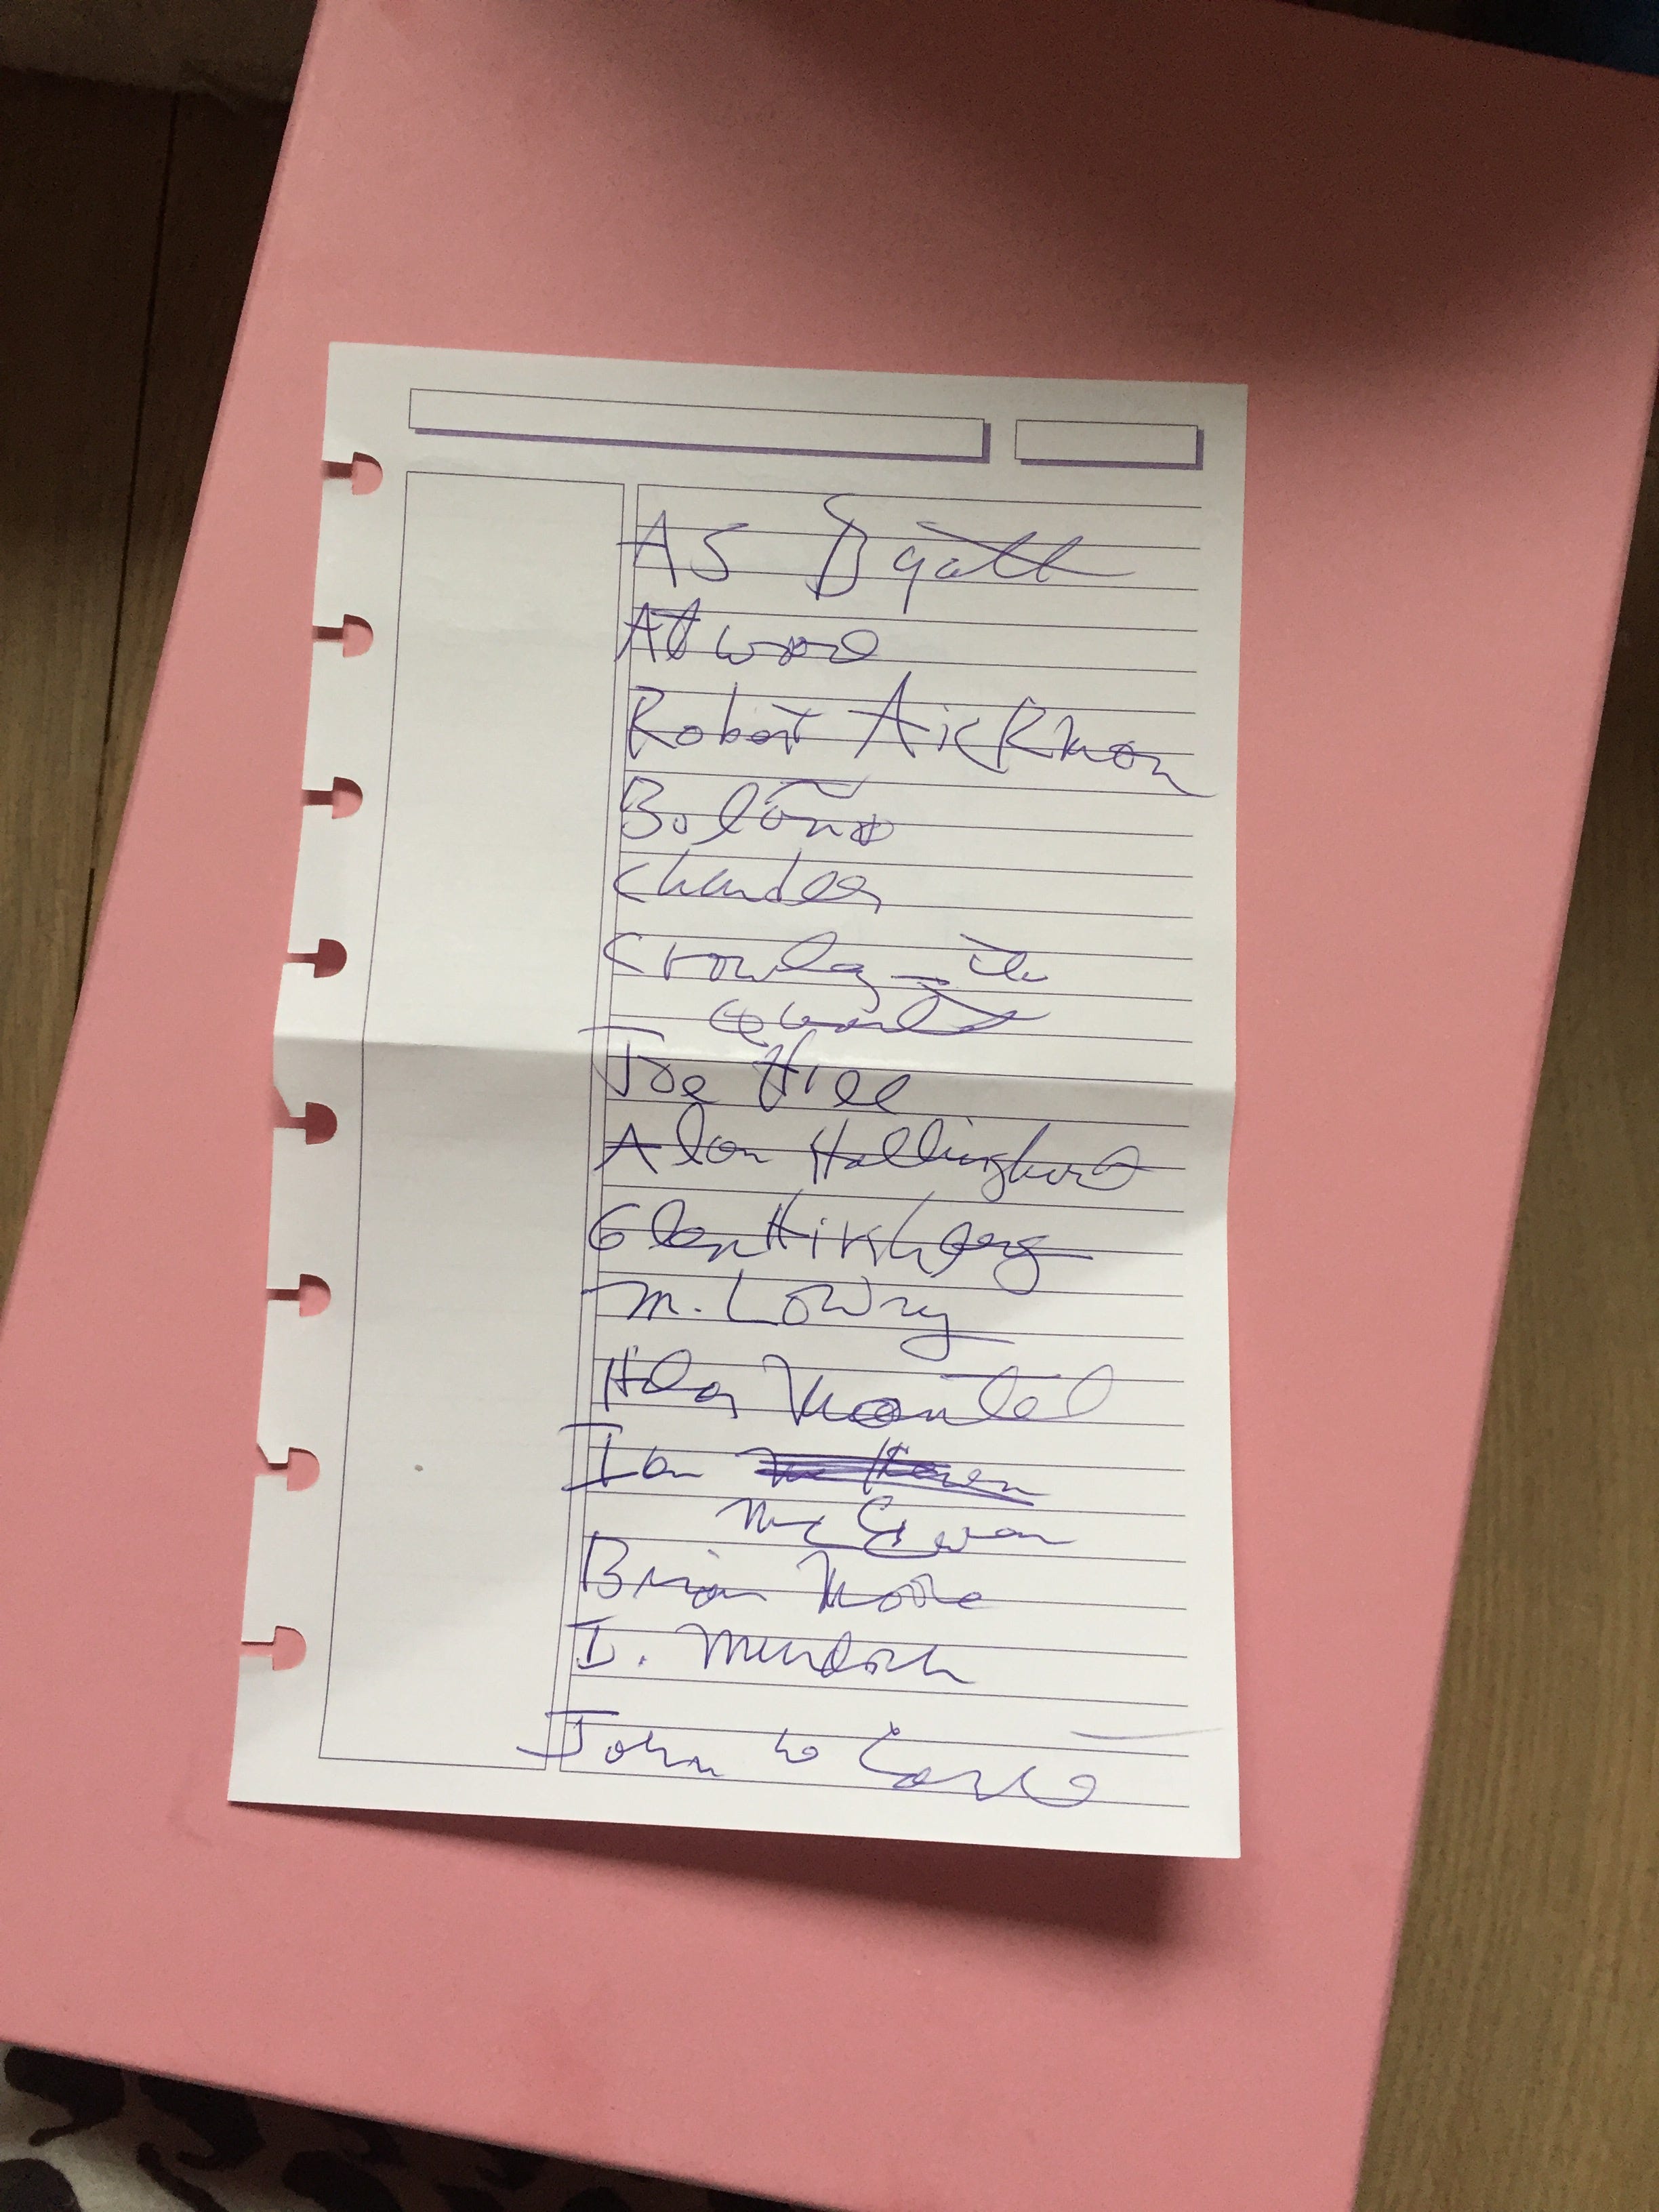 AS Byatt
Atwood
Robert Aickman
Bolaño
Chandler
Crowley - the
Joe Hill
Alan Hollinghurst
Glen Hirshberg
M. Lowry
Hilary Mantel
Ian
McEwan
Brian Moore
I. Murdoch
John le Carré